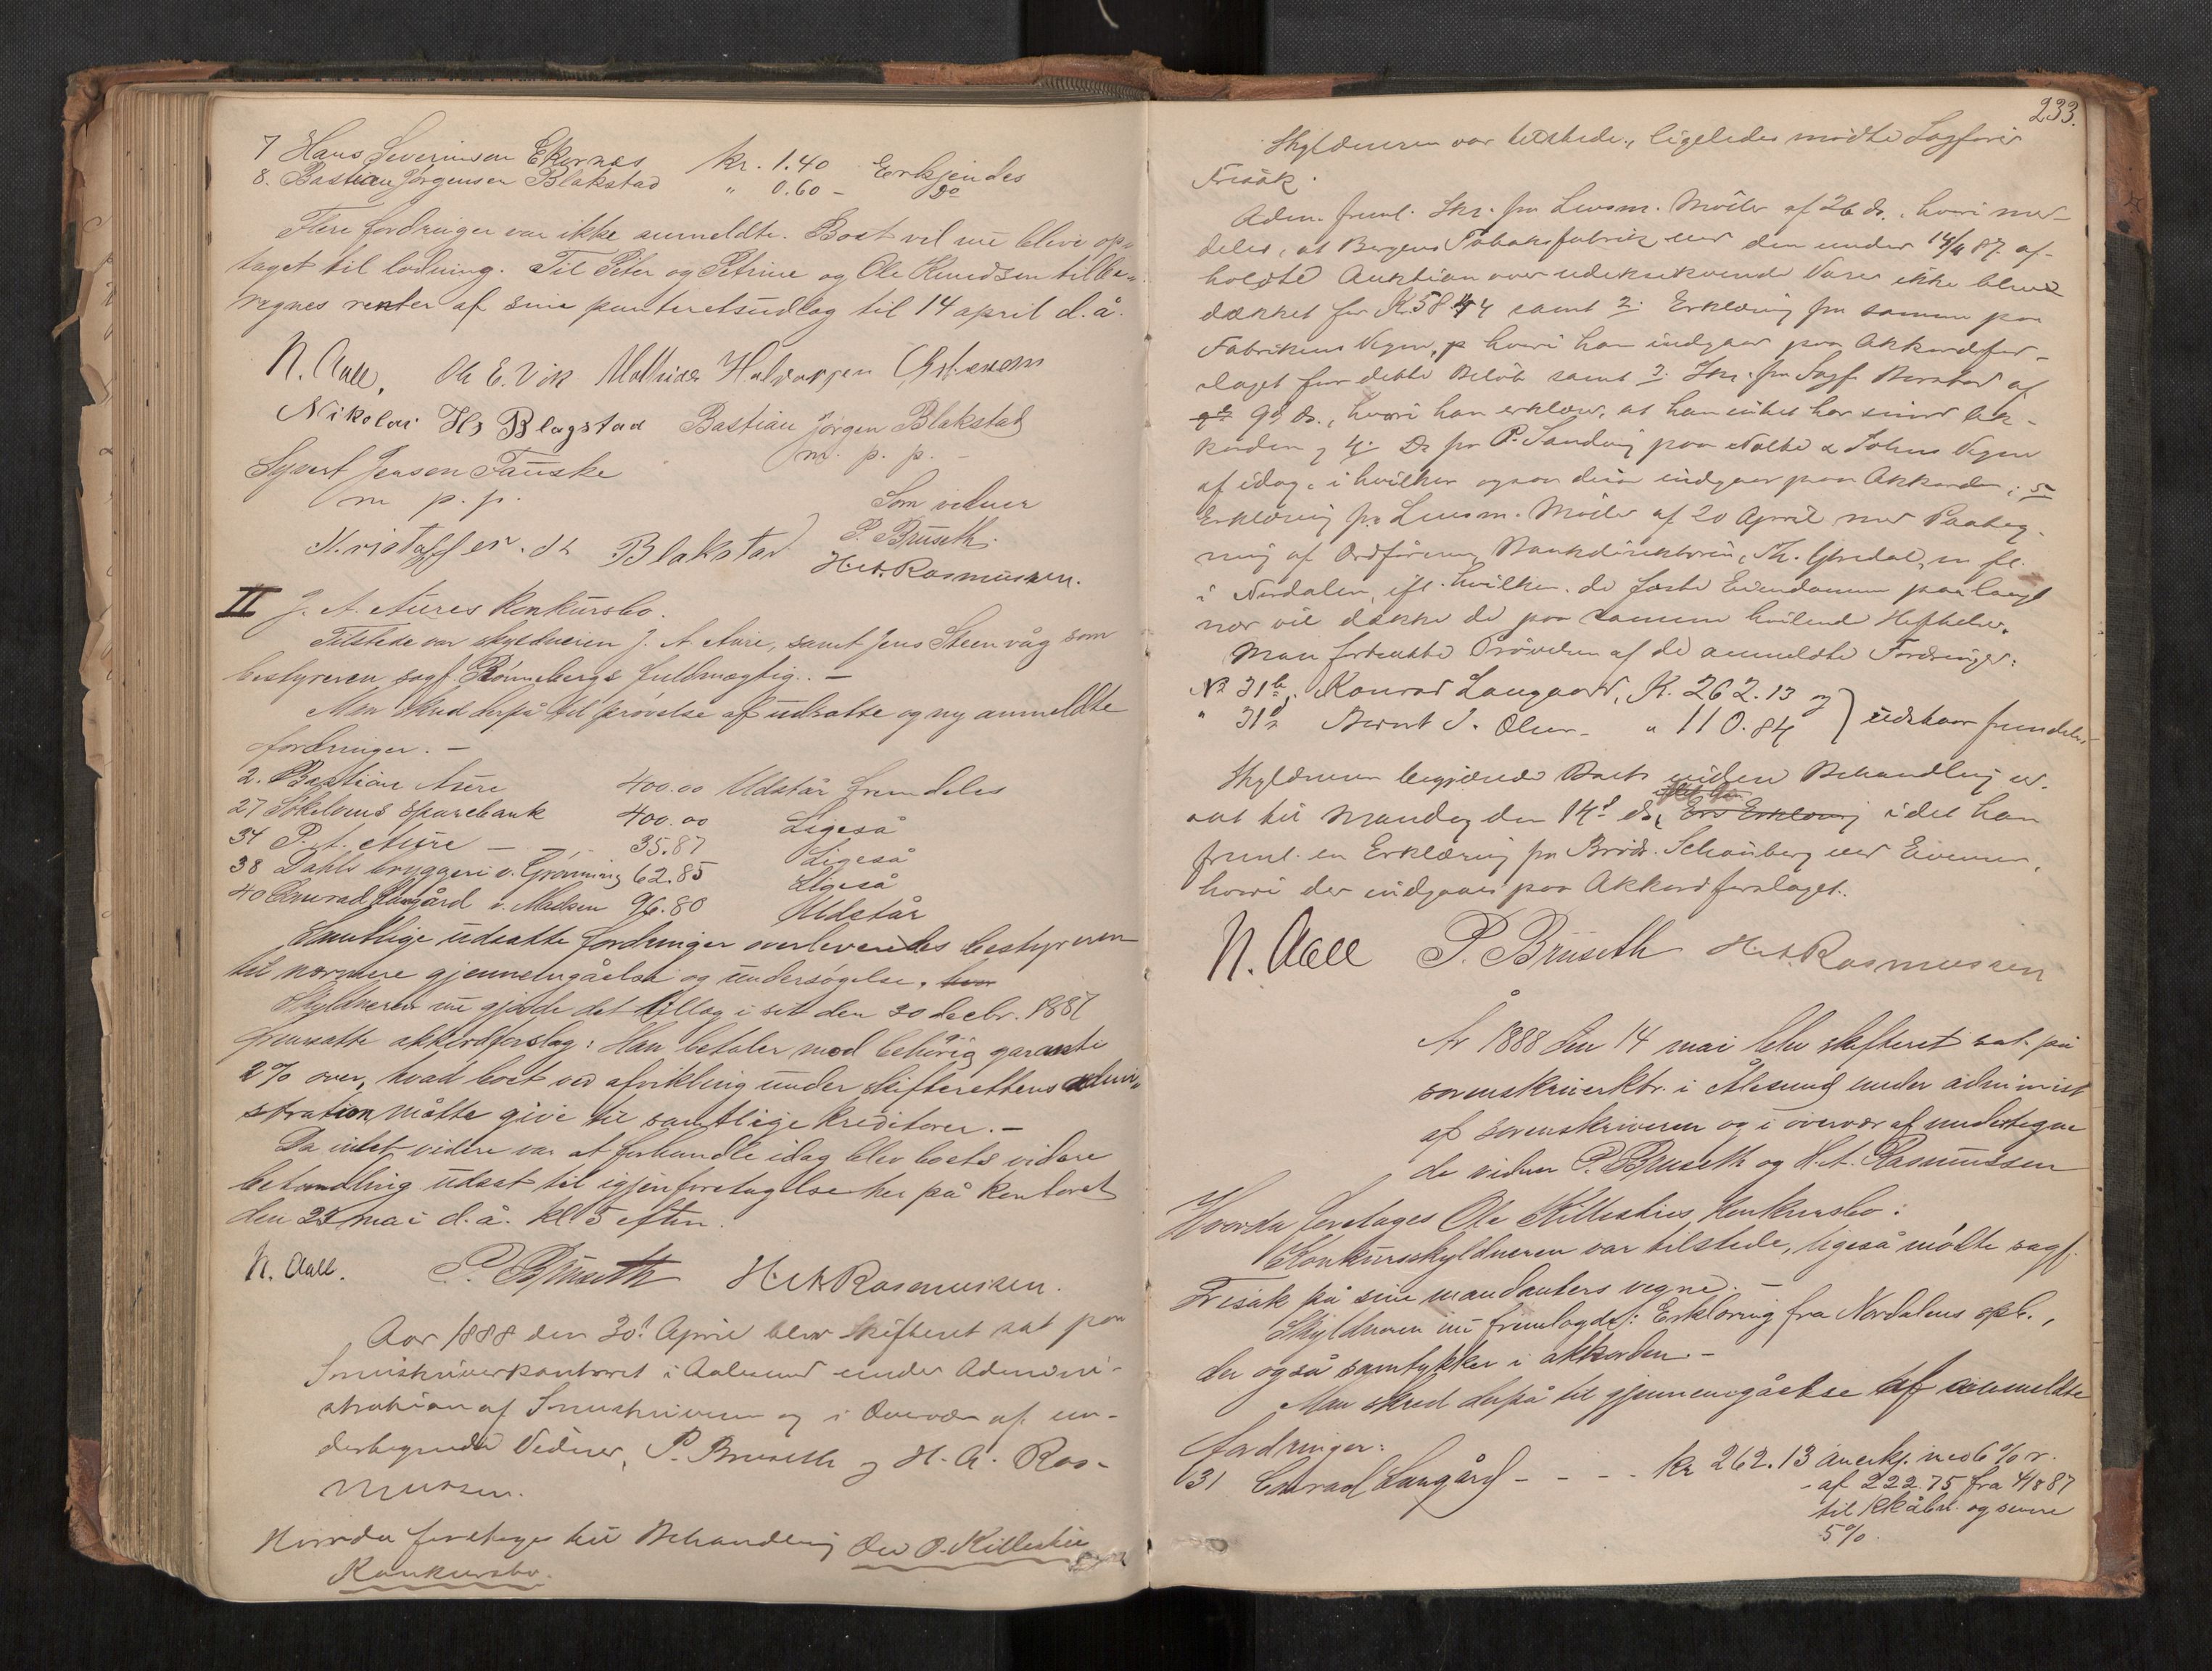 7 Hans Severinsen Ekornæs kr. 1.40 Erkjendes
8. Bastian Jørgensen Blakstad " 0.60 - Do
Flere fordringer var ikke anmeldte. Boet vil nu blive op-
taget til lodning. Til Peter og Petrine og Ole Knudsen tilbe-
regnes renter af sine panteretsudlæg til 14 april d. å.
N. Aall, Ole E. Vik Mathias Halvorsen
Nikolai Hs Blagstad Bastian Jørgen Blakstad
m. p. p. -
Syvert Jensen Fauske
m p. p.
Som vidner
P. Bruseth.
Kristoffer. Blakstad H. A. Rasmussen.
II J. A. Aures konkursbo.
Tilstede var skyldneren J. A. Aure, samt Jens Steenvåg som
bestyreren sagf. Rönnebergs fuldmægtig. -
Man skred derpå til prøvelse af udsatte og ny anmeldte
fordringer. -
2. Bastian Aure 400.00 Udstår fremdeles
27 Søkelvens sparebank 400.00 Ligeså
34 P. A. Aure - - 35.87 Ligeså
38 Dahls bryggeri v. Grønning 62.85 Ligeså
40 Konrad Langård v. Madsen 96.80 Udstår
Samtlige udsatte fordringer overleveredes bestyreren
til nærmere gjennemgåelse og undersøgelse.
Skyldneren nu gjorde det tillæg i sit den 30 decbr. 1887
fremsatte akkordforslag: Han betaler mod behørig garanti
2% over, hvad boet ved afvikling under skifterettens admini-
stration måtte give til samtlige kreditorer. -
Da intet videre var at forhandle idag blev boets videre
behandling udsat til igjenforetagelse her på kontoret
den 23 mai d. å. kl 5 eftm.
N. Aall. P. Bruseth H. A. Rasmussen.
Aar 1888 den 30t April blev Skifteret sat paa
Sorenskriverkontoret i Aalesund under Admini-
stration af Sorenskriveren og i Overvær af un-
dertegnede Vidner, P. Bruseth og H. A. Ras-
mussen.
Hvorda foretoges til Behandling Ole O. Killestis
Konkursbo.
233.
Skyldneren var tilstede, ligeledes mødte Sagfører
Frisak.
Adm. freml. Skr. fra Lensm. Møller af 26 ds., hvori med-
deles, at Bergens Tobaksfabrik ved den under 14/4 87. af-
holdte Auktion over udeksekverede Varer ikke blev
dækket for K. 58.44 samt 2. Erklæring fra samme paa
Fabrikens Vegne, hvori han indgaar paa Akkordfor-
slaget for dette Beløb samt 3. Skr. fra Sagf. af
9d ds., hvori han erklærer, at han intet har imod Ak-
korden og 4. Do fra P. Sandvig paa Nolte & Sohns Vegne
af idag, i hvilken ogsaa disse indgaar paa Akkorden; 5
Erklæring fra Lensm. Møller af 20 April med Paateg-
ning af Ordføreren, Bankdirektøren, m fl.
i Nordalen, ifl. hvilken de faste Eiendomme paa langt
nær vil dække de paa samme hvilende Heftelser.
Man fortsatte Prøvelsen af de anmeldte Fordringer:
No 31b, Konrad Langaard, K. 262.13 og
" 31d Bernt J. Olsen - " 110.84 } udstaar fremdeles
Skyldneren begjærede Boets videre Behandling ud-
sat til Mandag den 14d ds, idet han
freml. en Erklæring fra Brdr. Schanberg ved Eivinen,
hvori der indgaaes paa Akkordforslaget.
N. Aall P. Bruseth H. A. Rasmussen
År 1888 den 14 mai blev skifteret sat på
sorenskriverktr. i Ålesund under administ
af sorenskriveren og i overvær af undertegne
de vidner P. Bruseth og H. A. Rasmussen
Hvorda foretages Ole Killestis konkursbo:
Konkursskyldneren var tilstede, ligeså mødte sagf.
Frisak på sine mandanters vegne. -
Skyldneren nu fremlagde: Erklæring fra Nordalens spb.,
der også samtykker i akkorden -
Man skred derpå til gjennemgåelse af anmeldte
fordringer:
31 Conrad Langård - - - - kr 262.13 anerkj. med 6% r.
- af 222.75 fra 4/8 87
til kkåbn. og senere
5%.